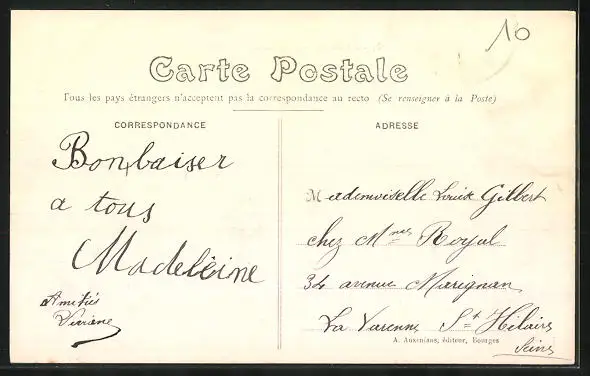 10
Carte Postale
Tous les pays étrangers n'acceptent pas la correspondance au recto (Se renseigner à la Poste)
CORRESPONDANCE
Bon baiser
a tous
Madeleine
Amitiés
Viviane
ADRESSE
Mademoiselle Louise Gilbert
chez Mmes Royal
34 avenue Marignan
La Varenne St Hilaire
Seine
A. Auxenfans, éditeur, Bourges